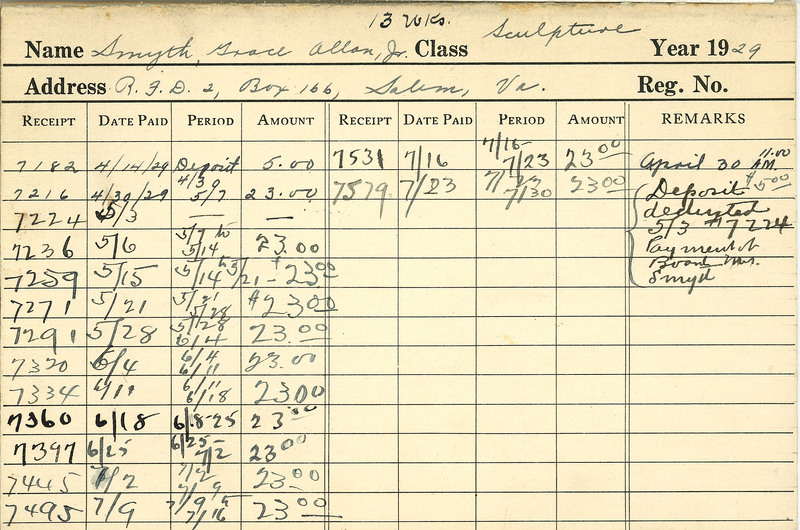 13 wks.
Name Smyth, Grace Allan, Jr. Class Sculpture Year 1929
Address R.F.D. 2, Box 166, Salem, Va. Reg. No.
RECEIPT DATE PAID PERIOD AMOUNT RECEIPT DATE PAID PERIOD AMOUNT REMARKS
7182 4/14/29 Deposit 5.00 7531 7/16 7/16- 7/23 23.00 April 30 11:00 A.M.
7216 4/30/29 4/30 5/7 23.00 7579 7/23 7/30 23.00 Deposit $5.00
7224 5/3 — — deducted
5/3 #7224
7236 5/6 5/7 to 5/14 23.00 Payment of
7259 5/15 5/14 5/21 - 23.00 Board Mrs.
Smyth
7271 5/21 5/21 5/28 $23.00
7291 5/28 5/28 6/4 23.00
7320 6/4 6/4 6/11 23.00
7334 6/11 6/11 6/18 23.00
7360 6/18 6/18-25 23.00
7397 6/25 6/25- 7/2 23.00
7445 7/2 7/2 7/9 23.00
7495 7/9 7/9 to 7/16 23.00